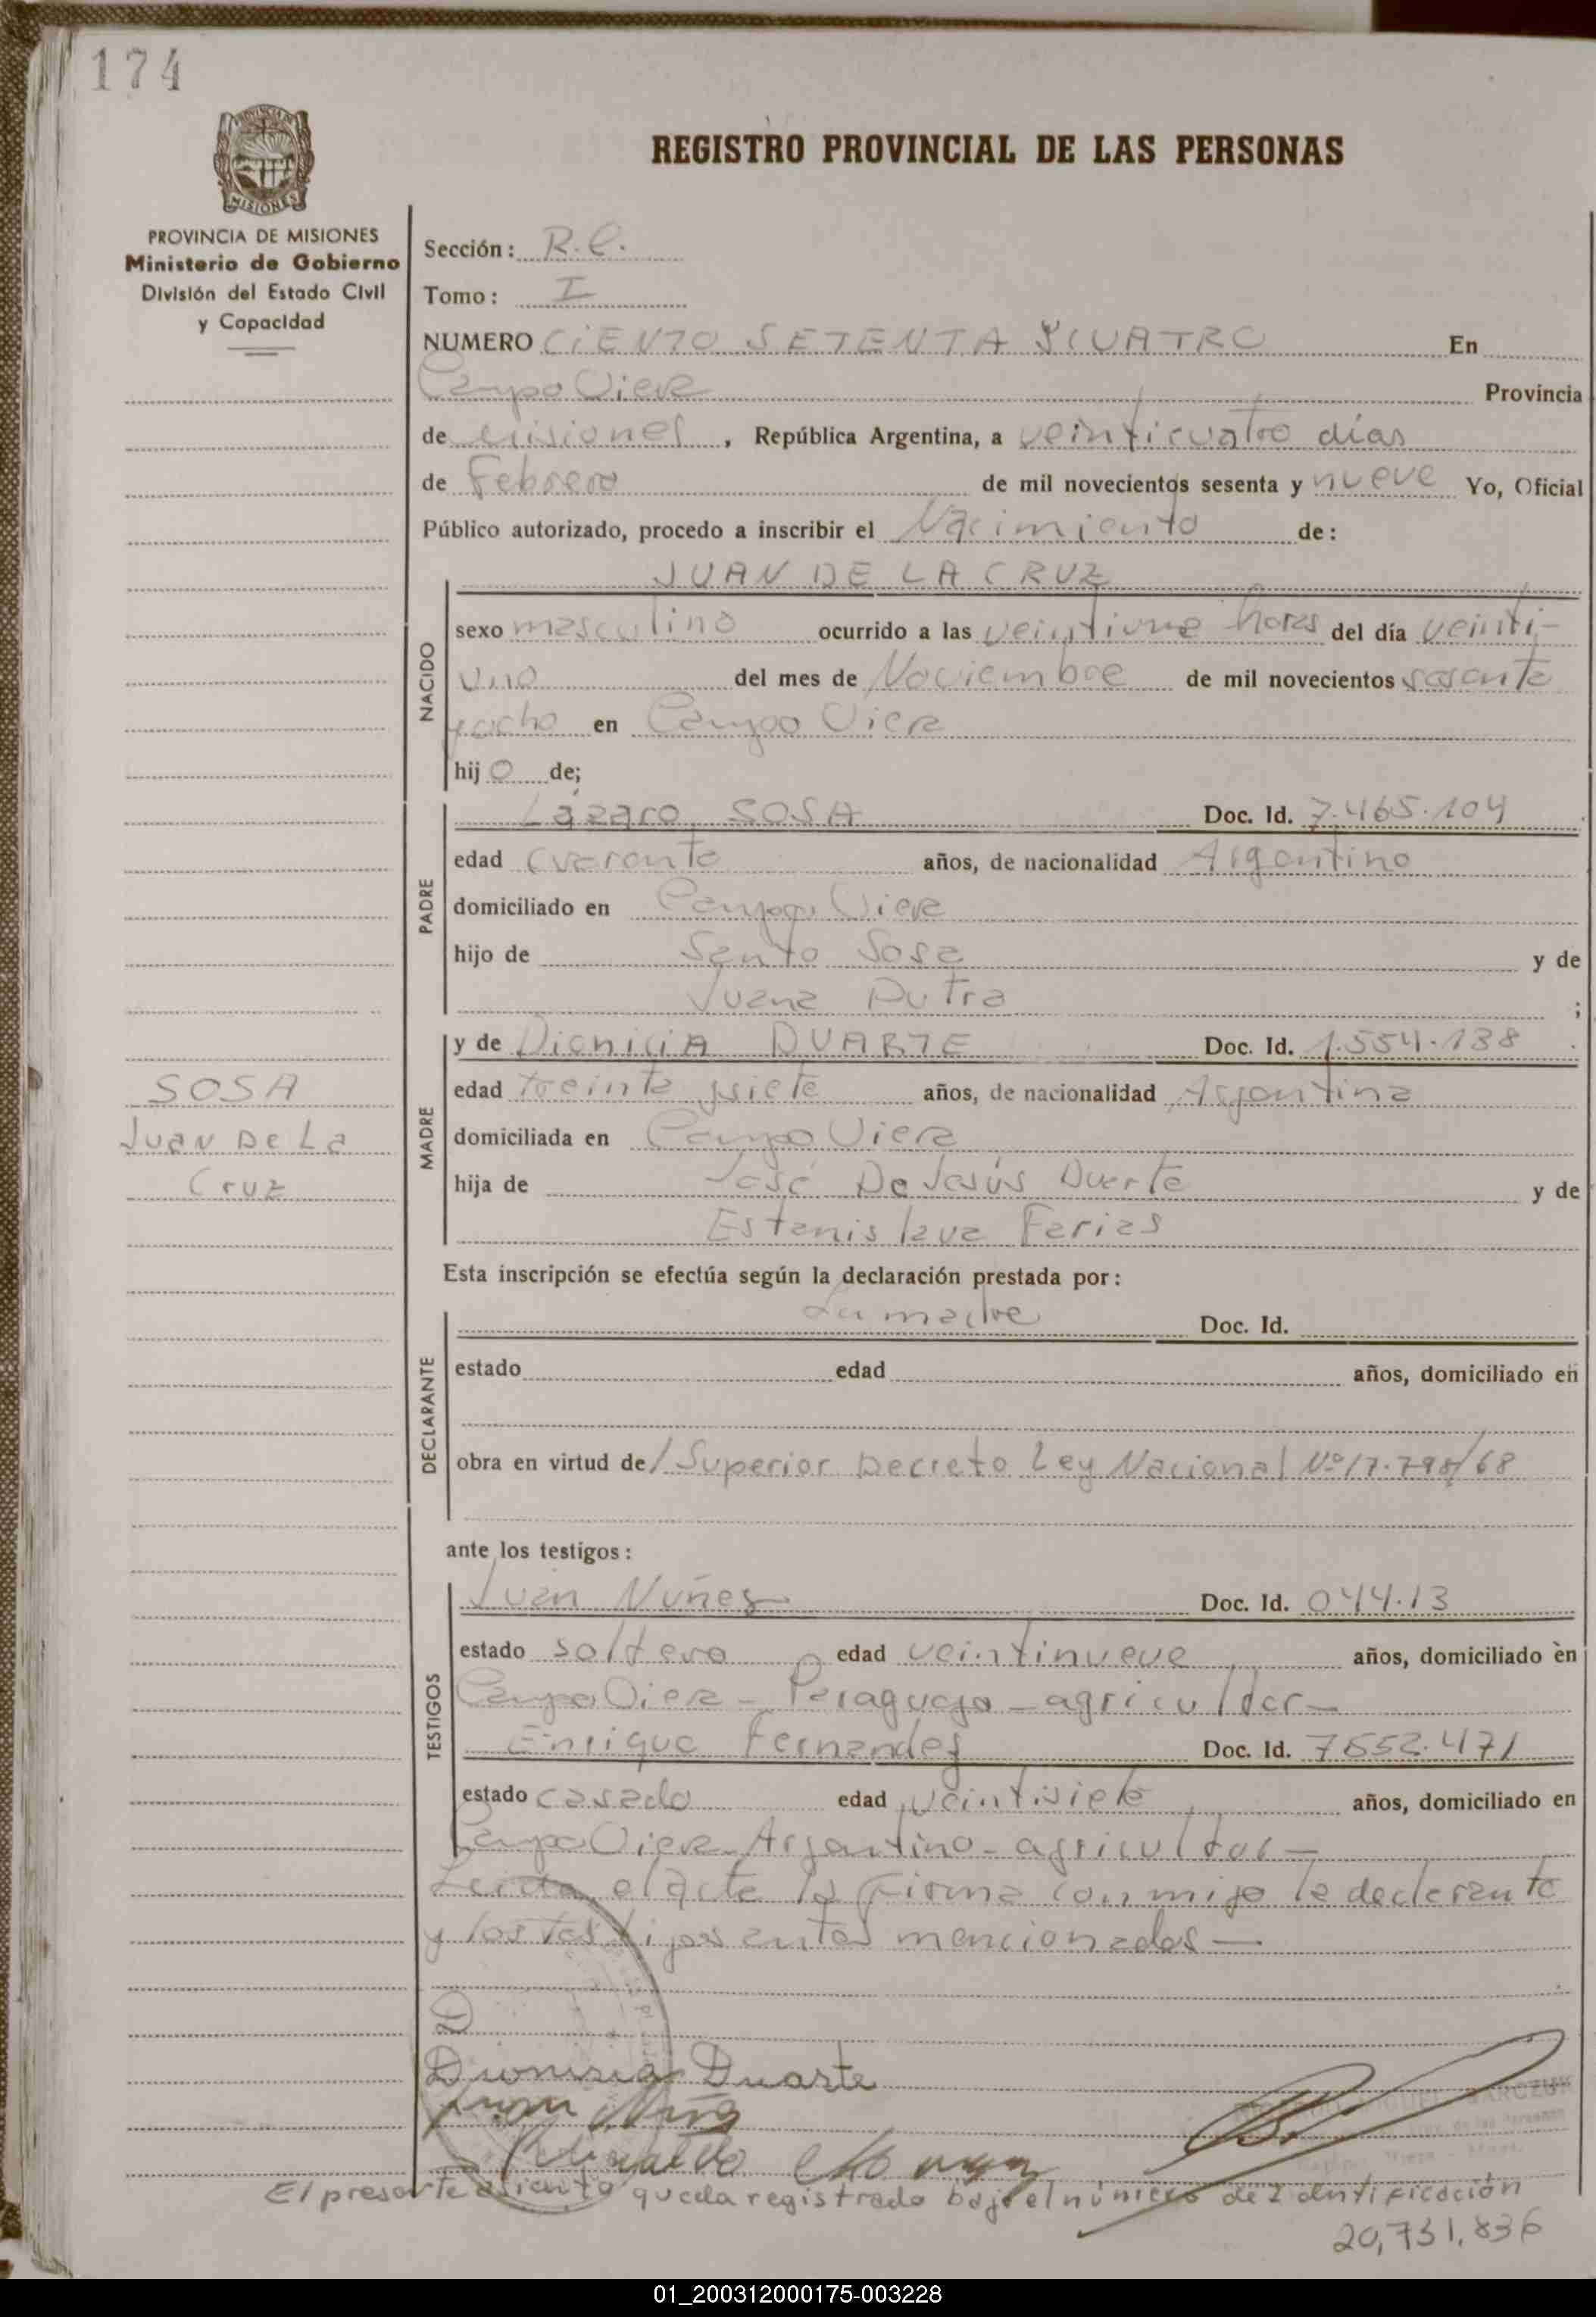 174
PROVINCIA DE MISIONES
Ministerio de Gobierno
División del Estado Civil
y Capacidad
REGISTRO PROVINCIAL DE LAS PERSONAS
Sección: R.C.
Tomo: I
NUMERO CIENTO SETENTA Y CUATRO En
Campo Viera Provincia
de Misiones, República Argentina, a veinticuatro días
de Febrero de mil novecientos sesenta y nueve Yo, Oficial
Público autorizado, procedo a inscribir el Nacimiento de:
JUAN DE LA CRUZ
NACIDO
sexo masculino ocurrido a las horas del día veinti-
uno del mes de Noviembre de mil novecientos sesenta
y ocho en Campo Viera
hijo de;
PADRE
Lázaro SOSA Doc. Id. 7.465.104
edad cuarenta años, de nacionalidad Argentino
domiciliado en Campo Viera
hijo de Santo Sosa y de
Juana Dutra ;
MADRE
y de Dionicia DUARTE Doc. Id. 1.554.138
edad treinta y siete años, de nacionalidad Argentina
domiciliada en Campo Viera
hija de José De Jesús Duarte y de
Estanislava Farias
SOSA
Juan De La
Cruz
Esta inscripción se efectúa según la declaración prestada por:
DECLARANTE
La madre Doc. Id.
estado edad años, domiciliado en
obra en virtud de/ Superior Decreto Ley Nacional Nº 17.798/68
ante los testigos:
TESTIGOS
Juan Nuñes Doc. Id. 044.13
estado soltero edad veintinueve años, domiciliado en
Campo Viera - Paraguayo - agricultor -
Enrique Fernandes Doc. Id. 7552.471
estado casado edad veintisiete años, domiciliado en
Campo Viera - Argentino - agricultor -
Leida el acta la firma conmigo la declarante
y los testigos antes mencionados —
D
Dionisia Duarte
Juan
El presente asiento queda registrado bajo el número de Identificación
20,731,836
01_200312000175-003228